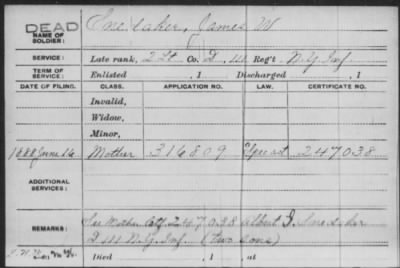 DEAD
NAME OF SOLDIER: Snedaker, James W
SERVICE: Late rank, 2 Lt Co. D, 111 Reg't N.Y. Inf.
TERM OF SERVICE: Enlisted , 1 Discharged , 1
DATE OF FILING. CLASS. APPLICATION NO. LAW. CERTIFICATE NO.
Invalid,
Widow,
Minor,
1888 June 16 Mother 316809 247038
ADDITIONAL SERVICES:
REMARKS: See Mother Ctf. 247038 Albert J. Snedaker
D 111 N.Y. Inf. (two sons)
Died , 1 , at